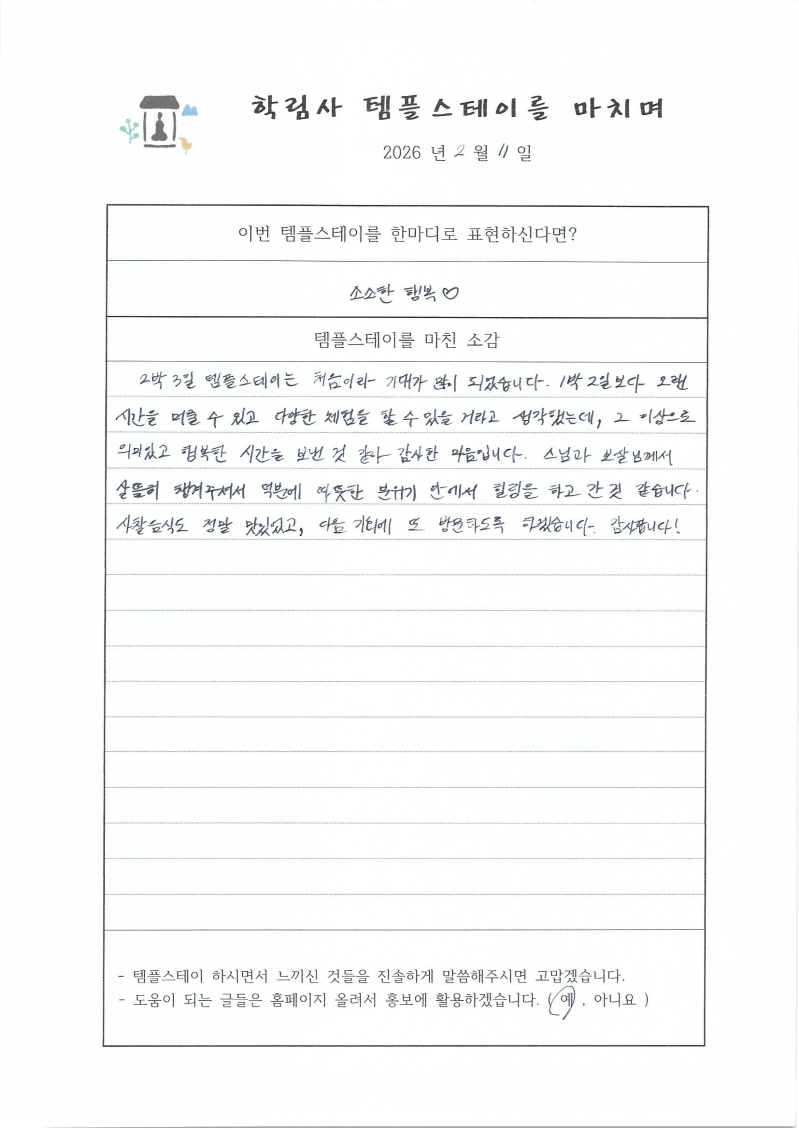 학림사 템플스테이를 마치며
2026 년 2 월 11 일
이번 템플스테이를 한마디로 표현하신다면?
소소한 행복♡
템플스테이를 마친 소감
2박 3일 템플스테이는 처음이라 기대가 많이 되었습니다. 1박 2일보다 오랜
시간을 머물 수 있고 다양한 체험을 할 수 있을 거라고 생각했는데, 그 이상으로
의미있고 행복한 시간을 보낸 것 같아 감사한 마음입니다. 스님과 보살님께서
살뜰히 챙겨주셔서 덕분에 따뜻한 분위기 안에서 힐링을 하고 간 것 같습니다.
사찰음식도 정말 맛있었고, 다음 기회에 또 방문하도록 하겠습니다. 감사합니다!
- 템플스테이 하시면서 느끼신 것들을 진솔하게 말씀해주시면 고맙겠습니다.
- 도움이 되는 글들은 홈페이지 올려서 홍보에 활용하겠습니다. ( 예 , 아니요 )